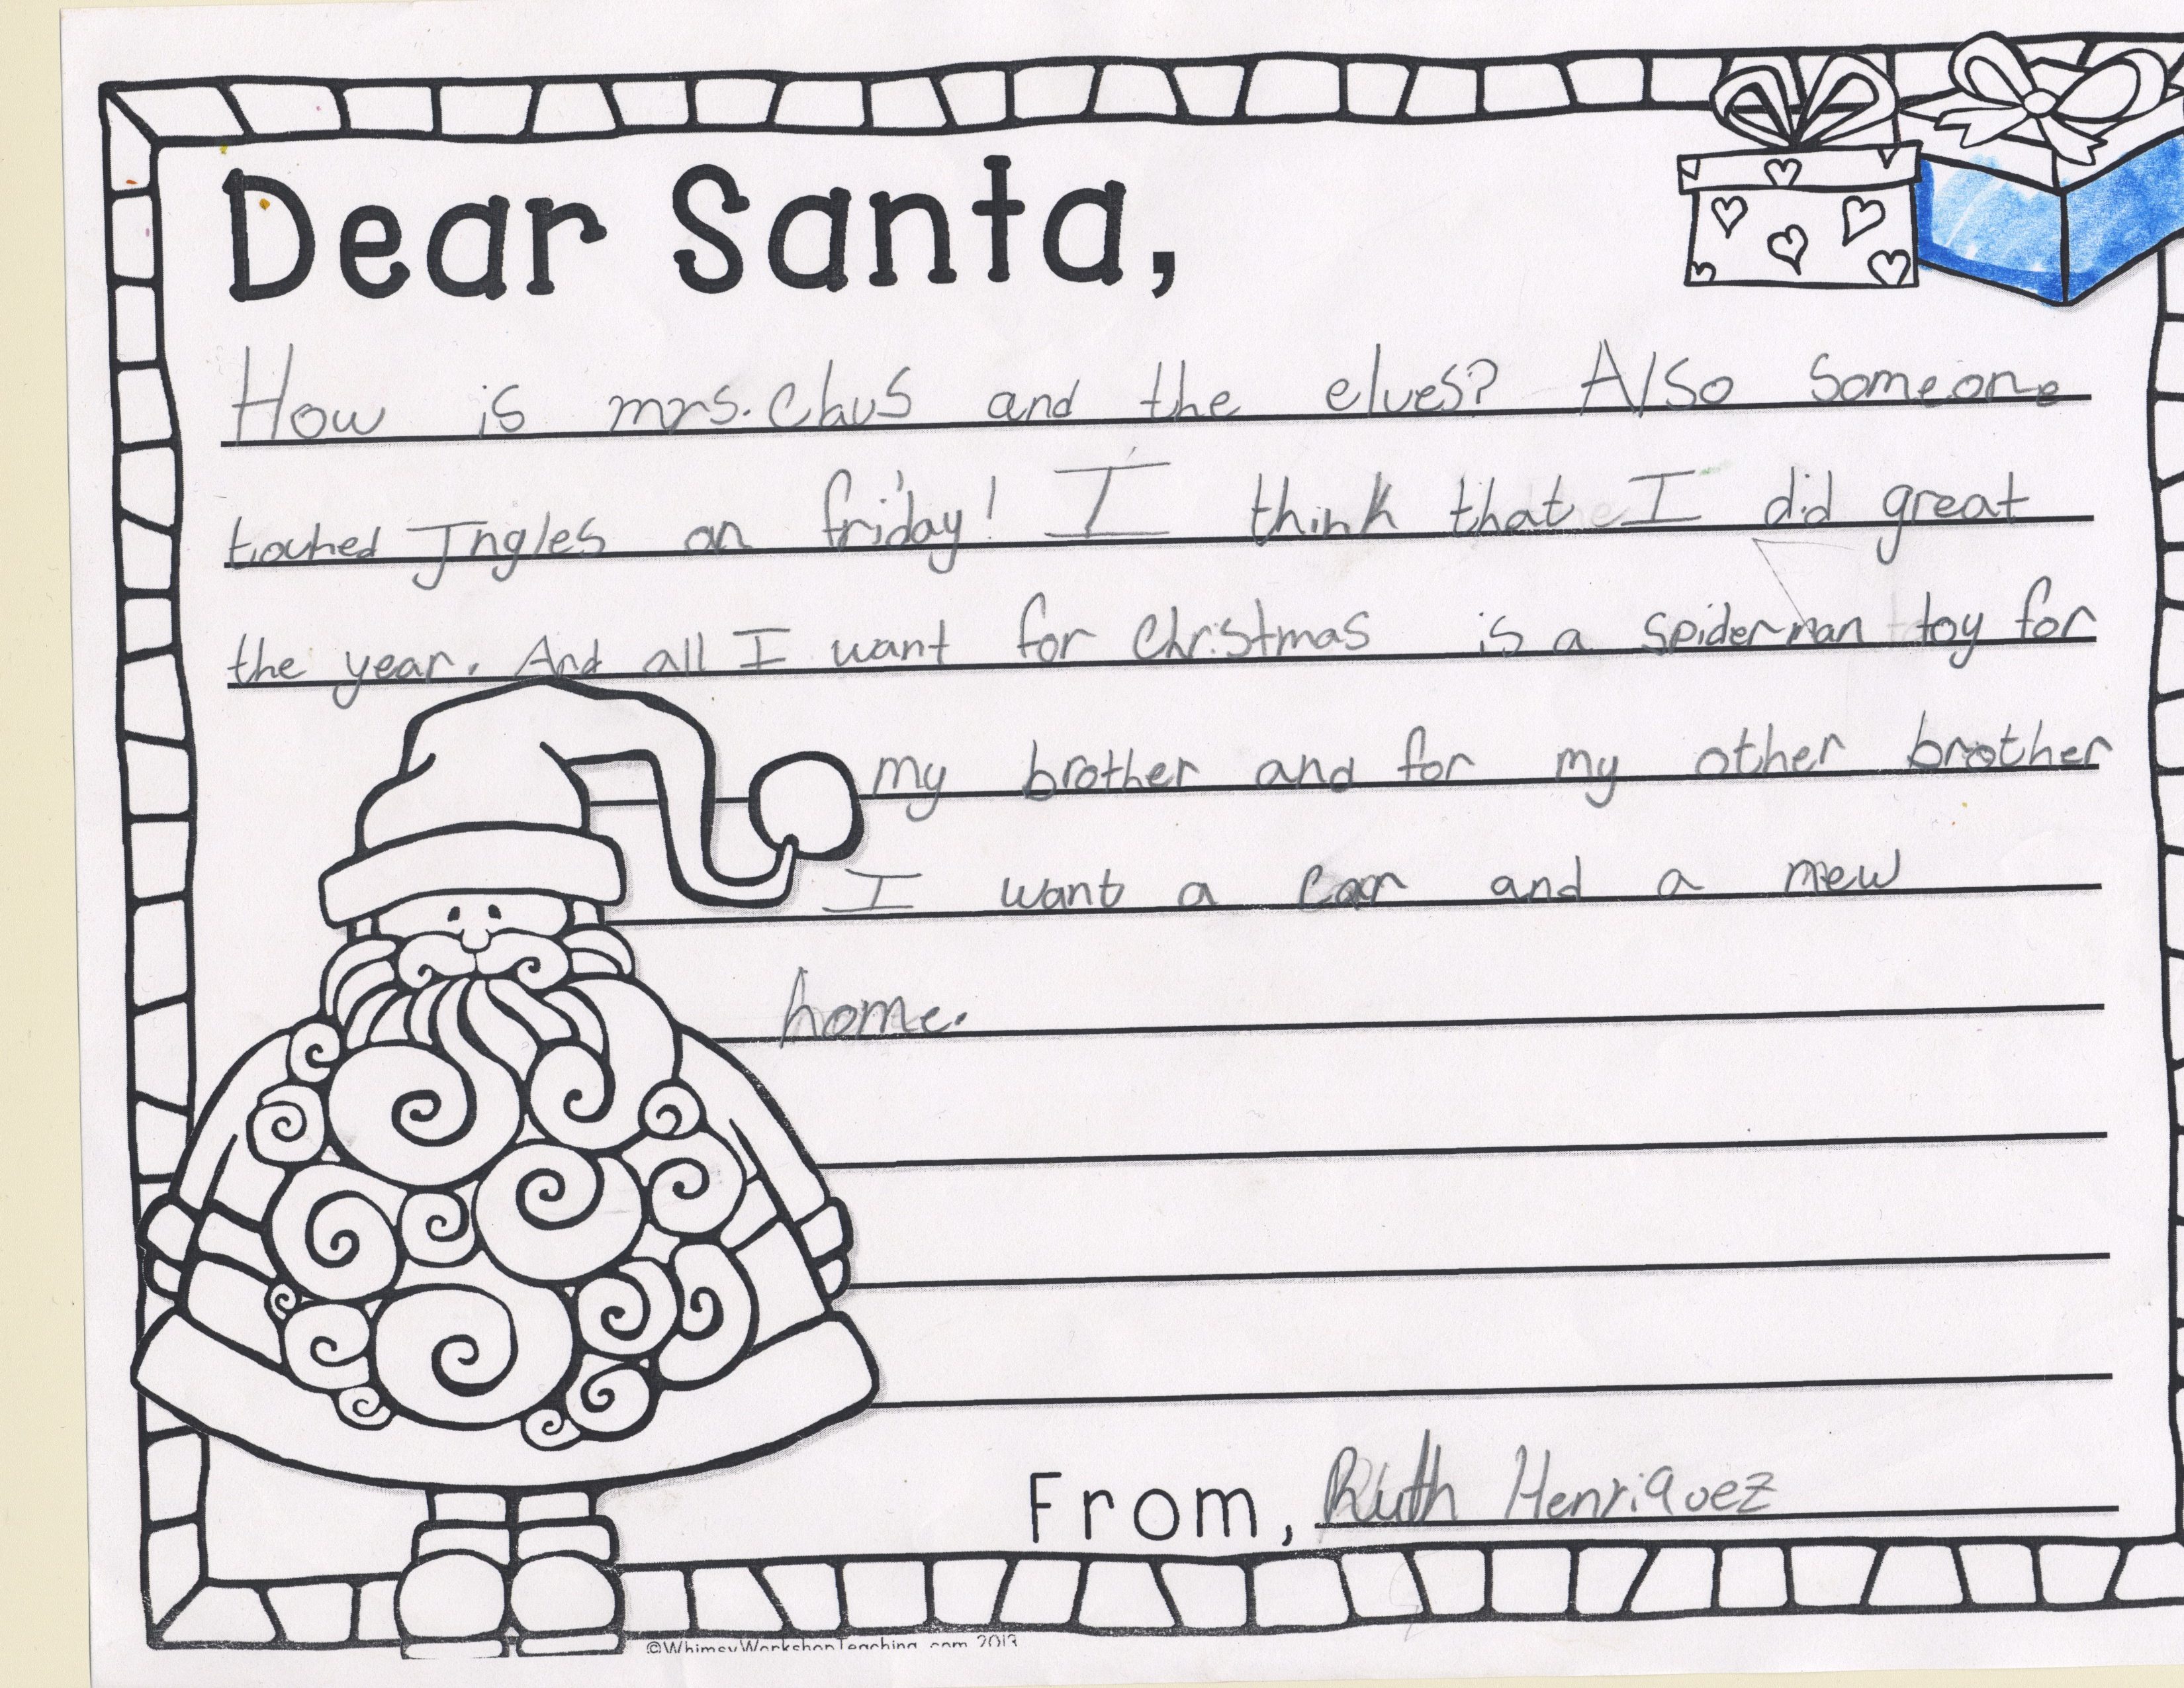 Dear Santa,
How is mrs. Claus and the elves? Also someone
touched Jngles on friday! I think that I did great
the year. And all I want for Christmas is a spiderman toy for
my brother and for my other brother
I want a car and a new
home.
From, Ruth Henriquez
©WhimsyWorkshopTeaching.com 2013